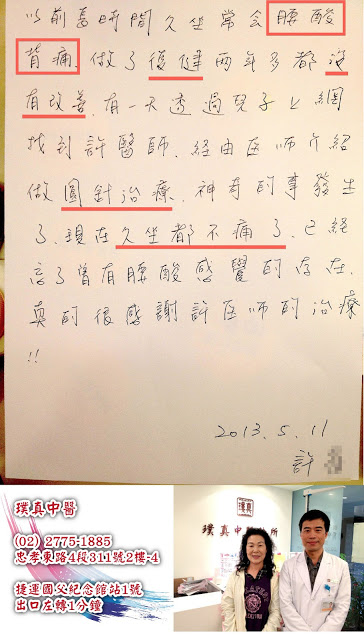 以前長時間久坐常會腰酸
背痛.做了復健兩年多都沒
有改善.有一天透過兒子上網
找到許醫師.經由医師介紹
做圓針治療.神奇的事發生
了.現在久坐都不痛了.已經
忘了曾有腰酸感覺的存在.
真的很感謝許医師的治療
!!
2013.5.11
許
璞真中醫
(02) 2775-1885
忠孝東路4段311號2樓-4
捷運國父紀念館站1號
出口左轉1分鐘
璞真
璞真中 所